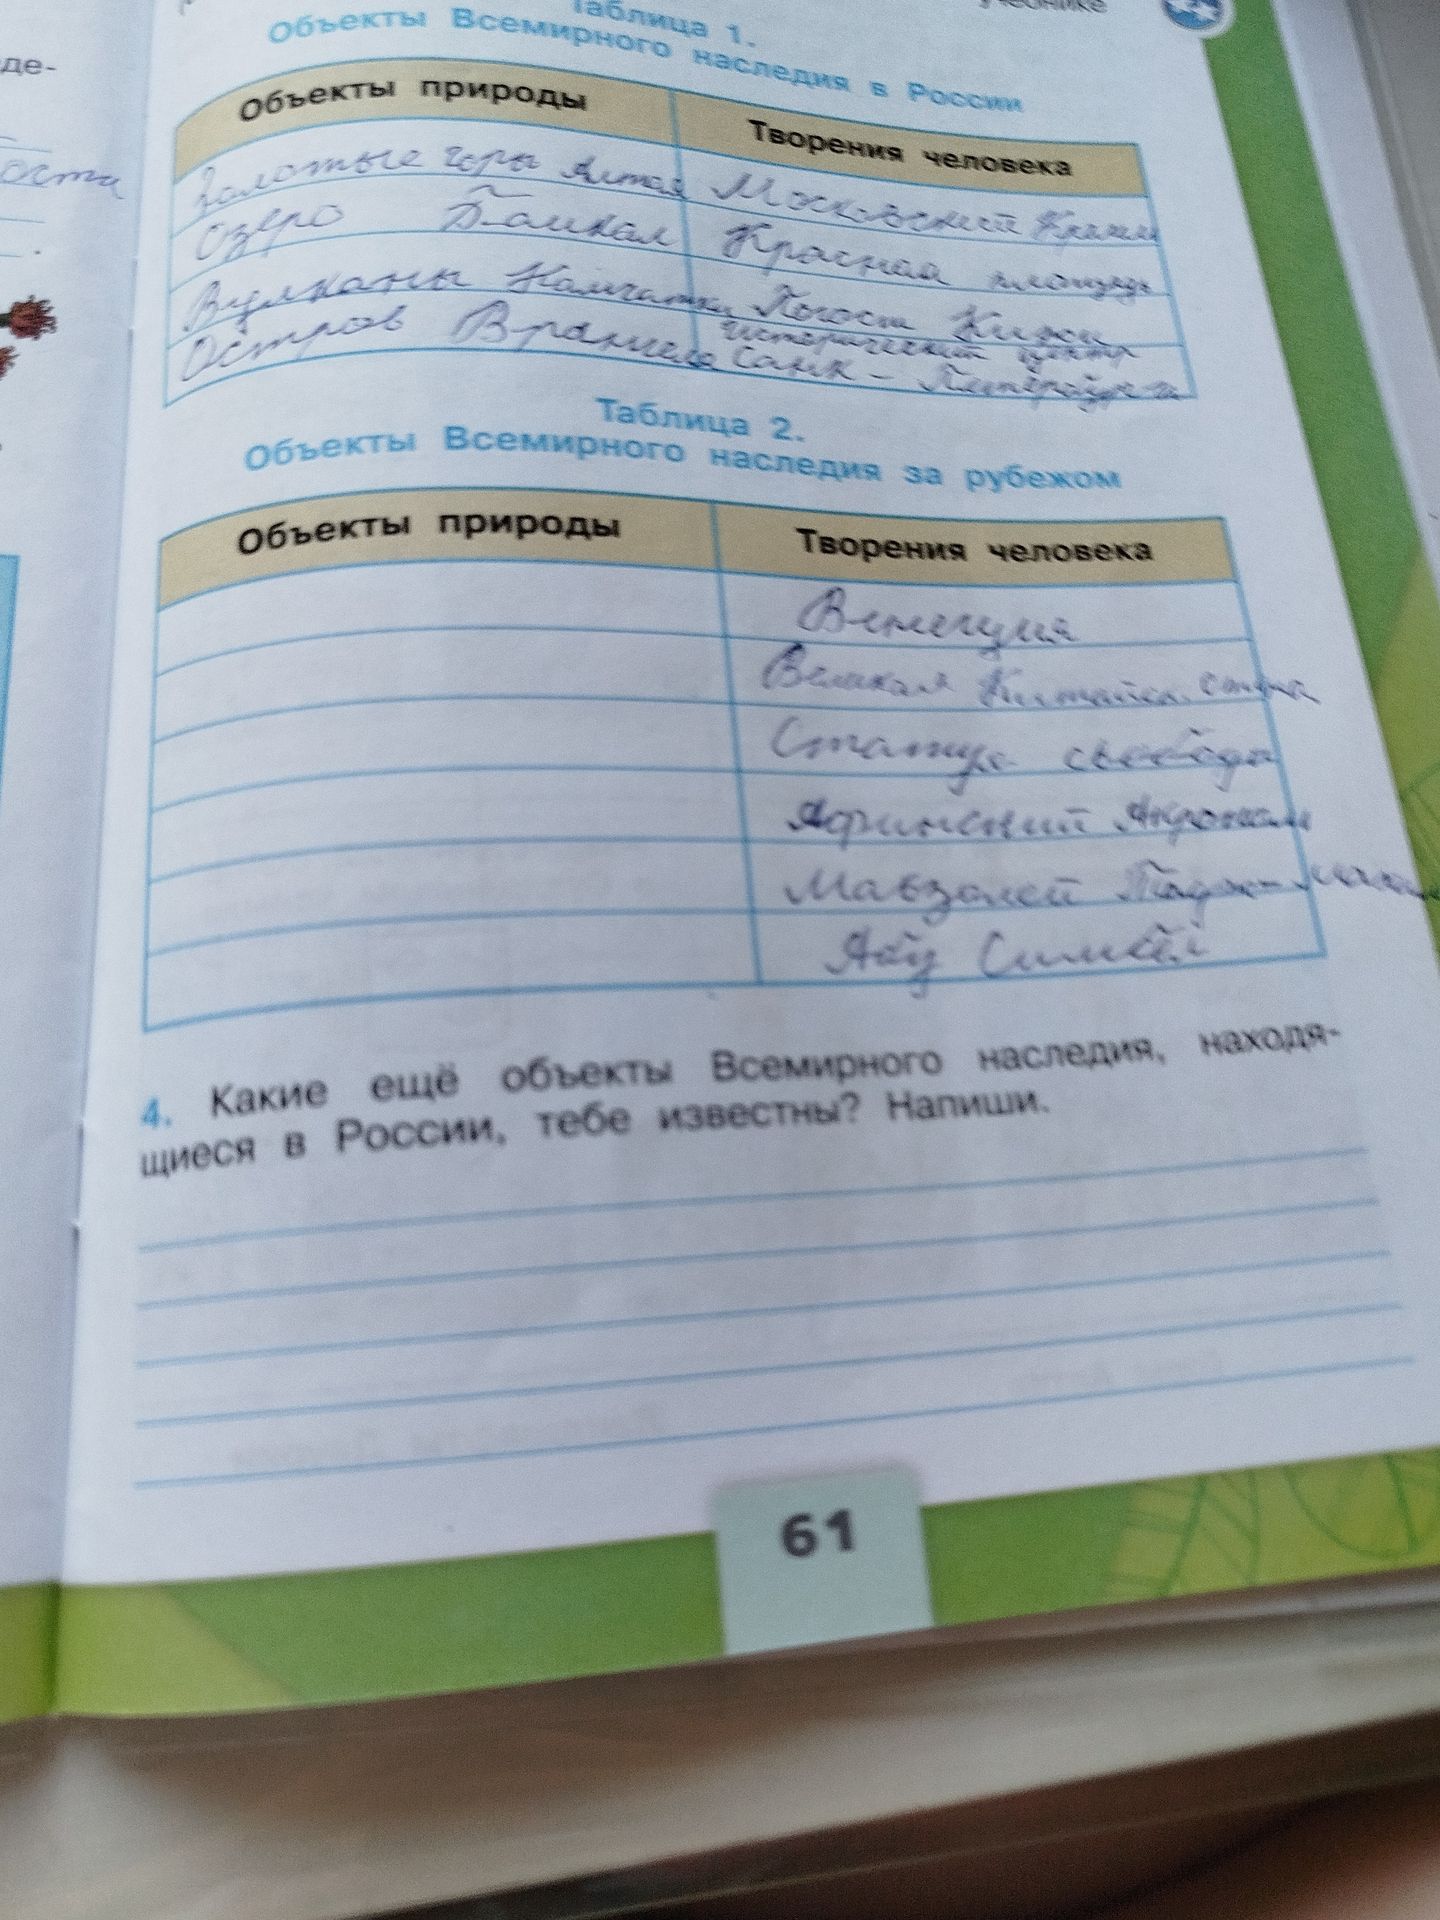 учебнике
Таблица 1.
Объекты Всемирного наследия в России
Объекты природы Творения человека
Золотые горы Алтая Московский Кремль
Озеро Байкал Красная площадь
Вулканы Камчатки Погост Кижи
Остров Врангеля исторический центр
Санк-Петербурга
Таблица 2.
Объекты Всемирного наследия за рубежом
Объекты природы Творения человека
Венеция
Великая Китайск. стена
Статуя свободы
Афинский Акрополь
Мавзолей Тадж-Махал
Абу Симбел
4. Какие ещё объекты Всемирного наследия, находя-
щиеся в России, тебе известны? Напиши.
61
де-
ости